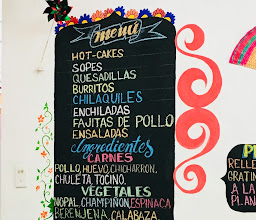 menú
HOT-CAKES
SOPES
QUESADILLAS
BURRITOS
CHILAQUILES
ENCHILADAS
FAJITAS DE POLLO
ENSALADAS
Ingredientes
CARNES
POLLO, HUEVO, CHICHARRON,
CHULETA, TOCINO.
VEGETALES
NOPAL, CHAMPIÑON, ESPINACA,
BERENJENA, CALABAZA
RELLE
GRATIN
A LA
PLAN